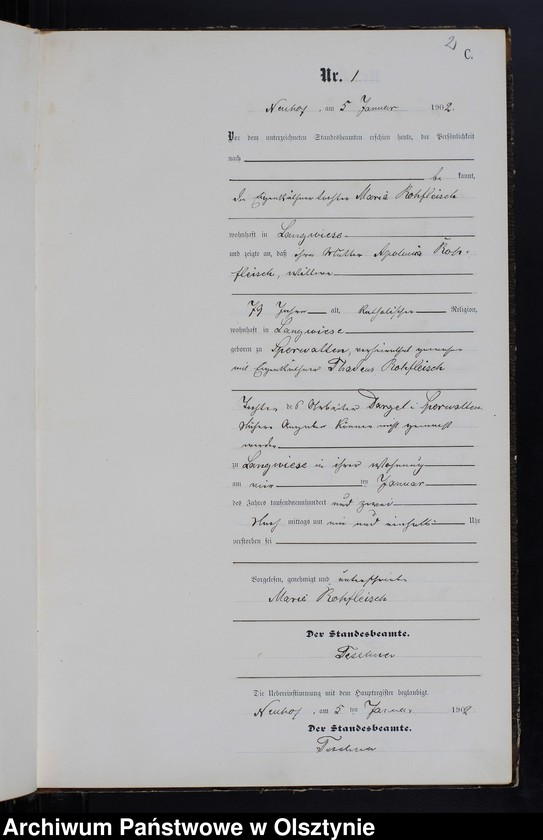 2
C.
Nr. 1
Neuhof, am 5 Januar 1902.
Vor dem unterzeichneten Standesbeamten erschien heute, der Persönlichkeit
nach
be kannt,
die Eigenkäthnertochter Maria Rohfleisch
wohnhaft in Langwiese
und zeigte an, daß ihre Mutter Apolonia Roh-
fleisch, Wittwe
79 Jahre alt, katholischer Religion,
wohnhaft in Langwiese
geboren zu Sperwatten, verheirathet gewesen
mit Eigenkäthner Thadeus Rohfleisch
Tochter des Arbeiter Dargel in Sperwatten
Nähere Angaben können nicht gemacht
werden
zu Langwiese in ihrer Wohnung
am ten Januar
des Jahres tausendneunhundert und zwei
Nach mittags um ein und einhalb Uhr
verstorben sei
Vorgelesen, genehmigt und unterschrieben
Maria Rohfleisch
Der Standesbeamte.
Teschner
Die Uebereinstimmung mit dem Hauptregister beglaubigt.
Neuhof, am 5 ten Januar 1902
Der Standesbeamte.
Teschner
Archiwum Państwowe w Olsztynie